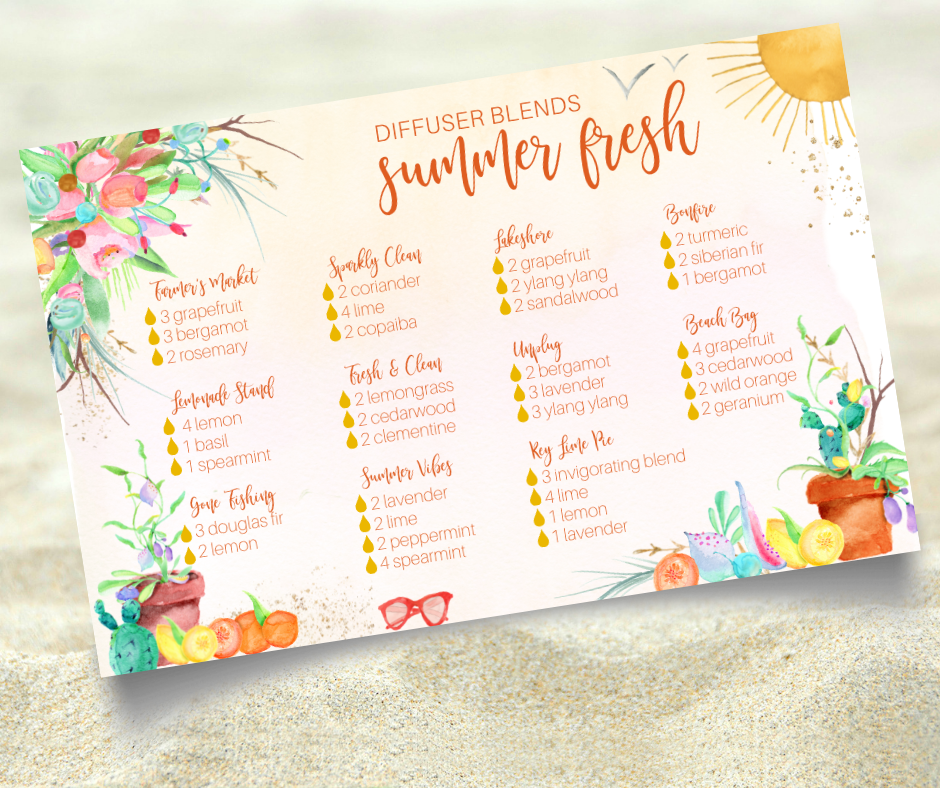 DIFFUSER BLENDS
summer fresh
Farmer's Market
3 grapefruit
3 bergamot
2 rosemary
Lemonade Stand
4 lemon
1 basil
1 spearmint
Gone Fishing
3 douglas fir
2 lemon
Sparkly Clean
2 coriander
4 lime
2 copaiba
Fresh & Clean
2 lemongrass
2 cedarwood
2 clementine
Summer Vibes
2 lavender
2 lime
2 peppermint
4 spearmint
Lakeshore
2 grapefruit
2 ylang ylang
2 sandalwood
Unplug
2 bergamot
3 lavender
3 ylang ylang
Key Lime Pie
3 invigorating blend
4 lime
1 lemon
1 lavender
Bonfire
2 turmeric
2 siberian fir
1 bergamot
Beach Bag
4 grapefruit
3 cedarwood
2 wild orange
2 geranium